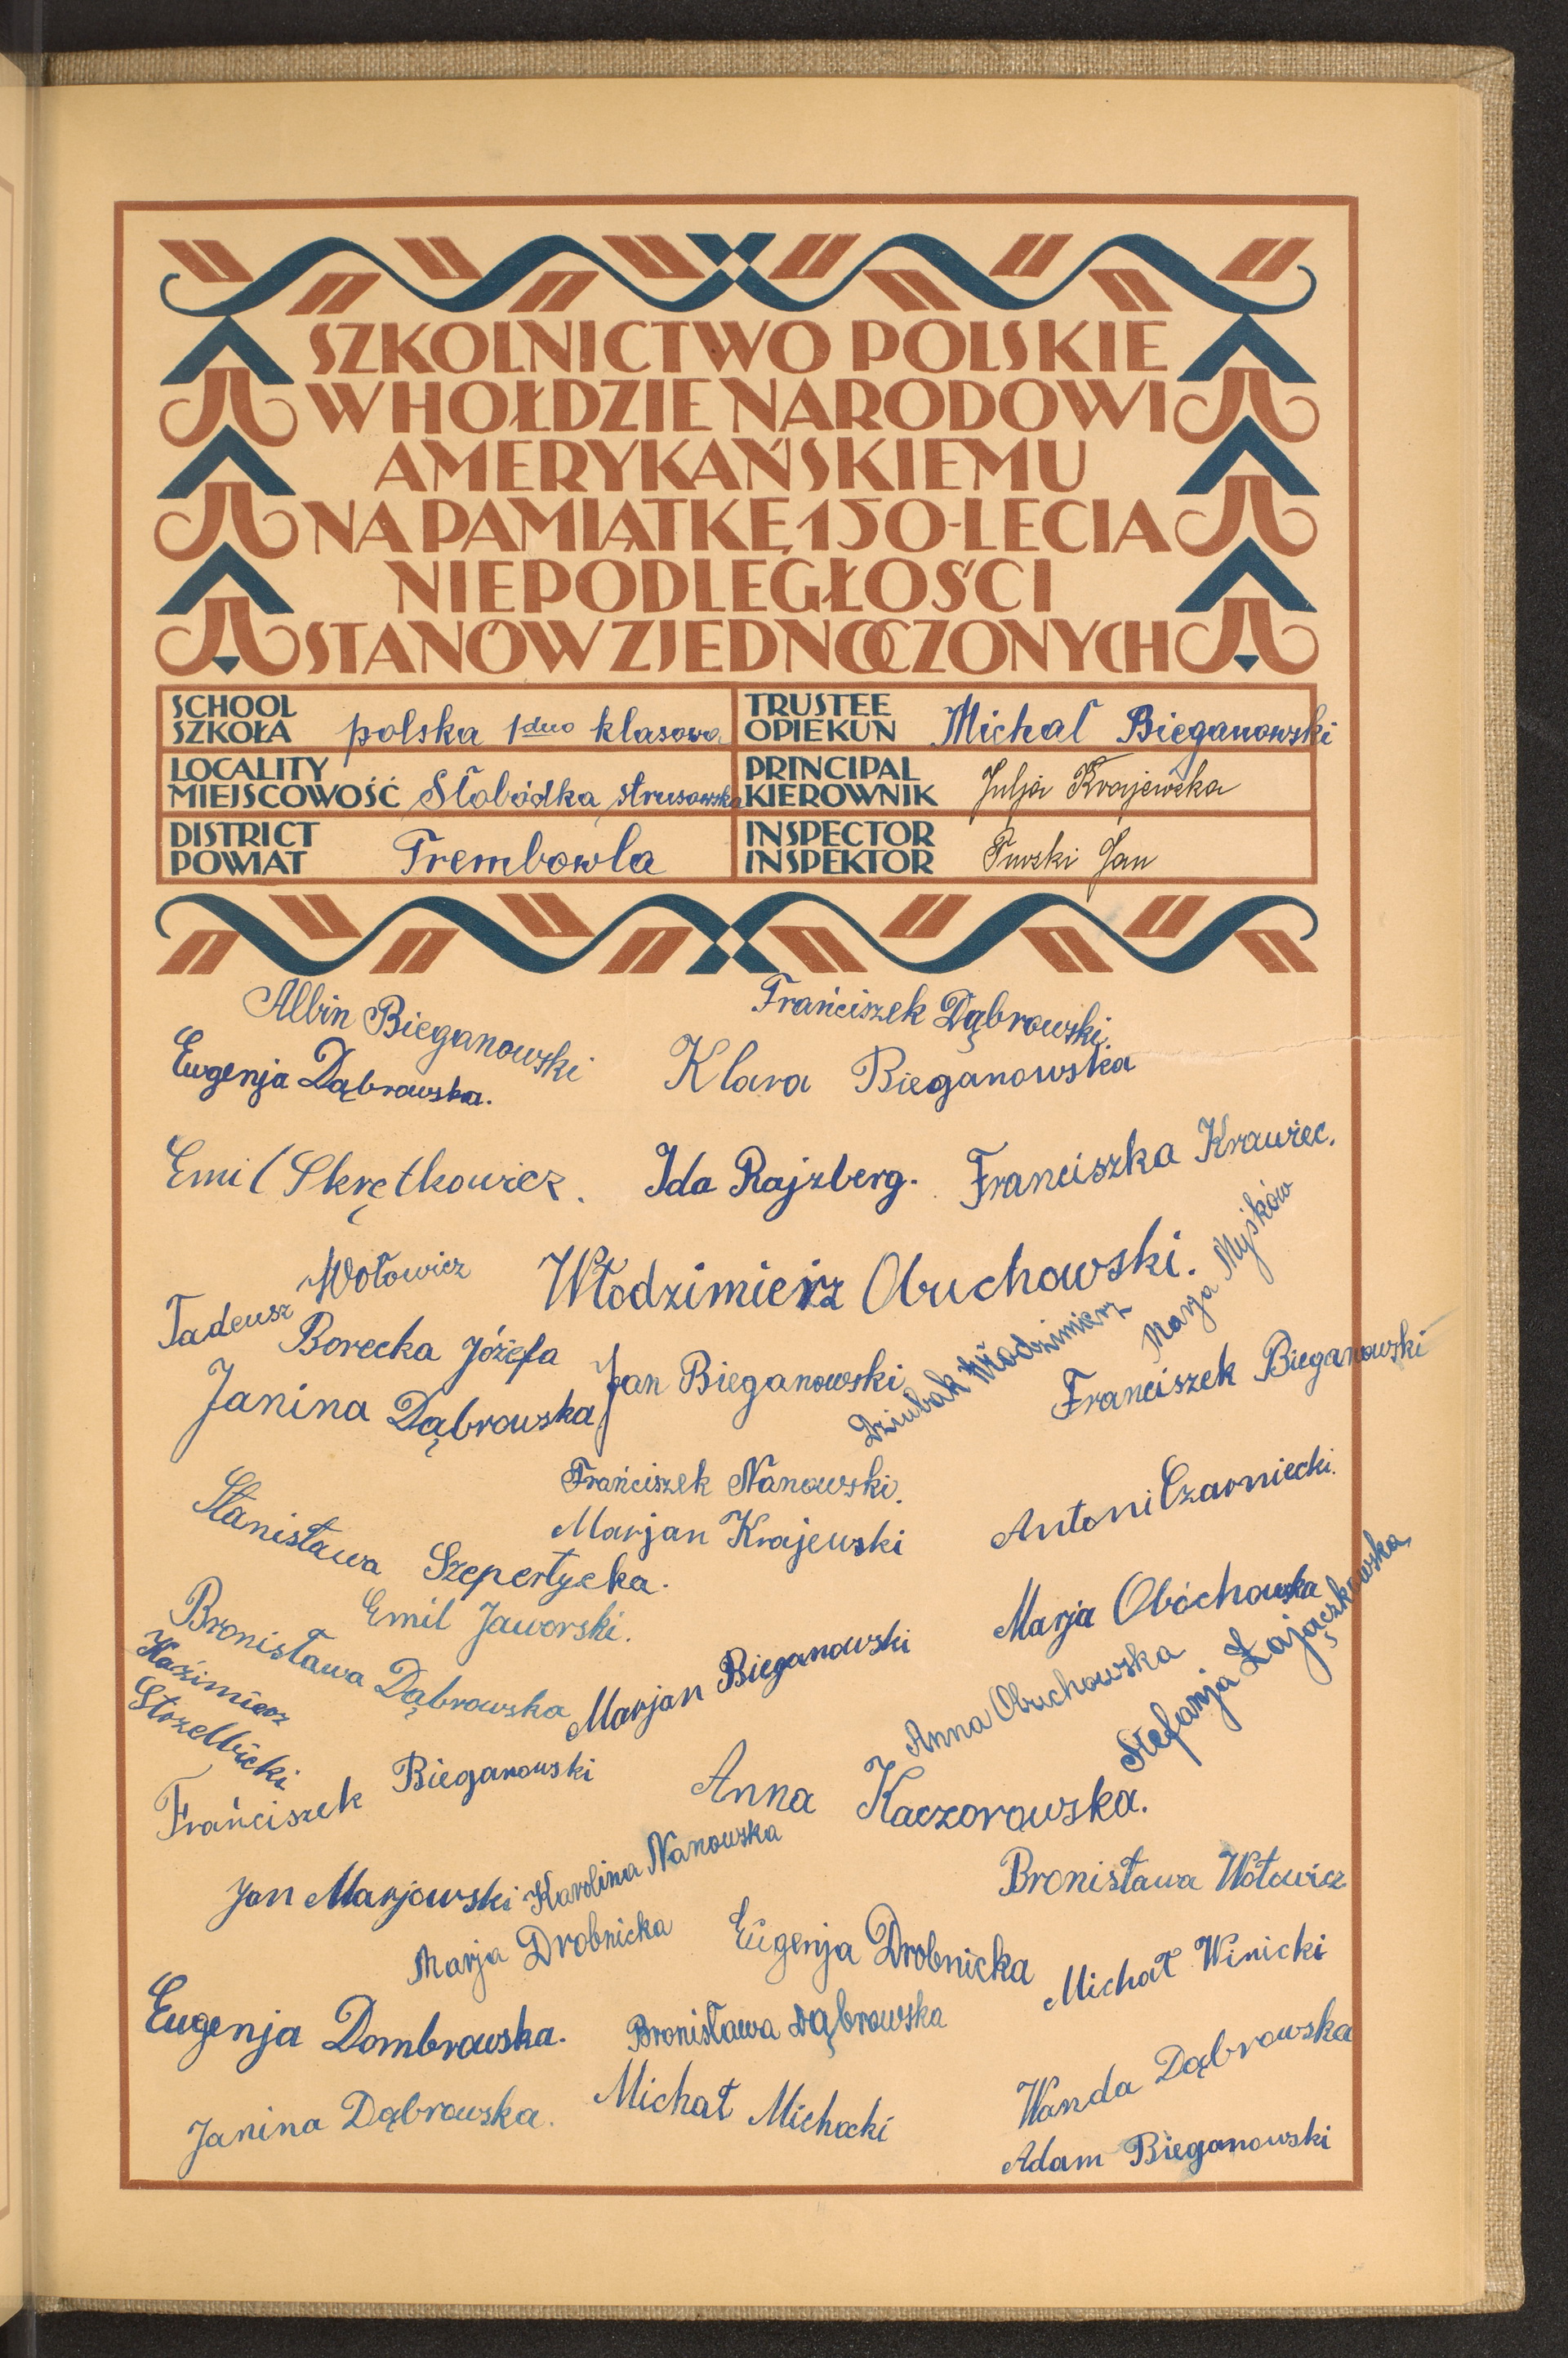 SZKOLNICTWO POLSKIE
W HOŁDZIE NARODOWI
AMERYKAŃSKIEMU
NA PAMIĄTKĘ 150-LECIA
NIEPODLEGŁOŚCI
STANÓW ZJEDNOCZONYCH
SCHOOL
SZKOŁA polska 1dno klasowa
TRUSTEE
OPIEKUN Michał Bieganowski
LOCALITY
MIEJSCOWOŚĆ Słobódka strusowska
PRINCIPAL
KIEROWNIK Julja Krajewska
DISTRICT
POWIAT Trembowla
INSPECTOR
INSPEKTOR Jan
Albin Bieganowski
Frańciszek Dąbrowski.
Eugenja Dąbrowska.
Klara Bieganowska
Emil Skrętkowicz.
Ida Rajzberg.
Franciszka Krawiec.
Tadeusz Wołowicz
Włodzimierz Obuchowski.
Marja Myśków
Borecka Józefa
Jan Bieganowski
Dziubak Włodzimierz
Franciszek Bieganowski
Janina Dąbrowska
Frańciszek Nanowski.
Antoni Czarniecki.
Stanisława Szepertycka.
Marjan Krajewski
Emil Jaworski.
Marja Obóchowska
Bronisława Dąbrowska
Marjan Bieganowski
Anna Obuchowska
Stefanja Zajączkowska
Kaźimierz
Strzelbicki
Frańciszek Bieganowski
Anna Kaczorowska.
Jan Marjowski
Karolina Nanowska
Bronisława Wołowicz
Marja Drobnicka
Eugenja Drobnicka
Michał Winicki
Eugenja Dombrowska.
Bronisława Dąbrowska
Wanda Dąbrowska
Janina Dąbrowska.
Michał Michocki
Adam Bieganowski